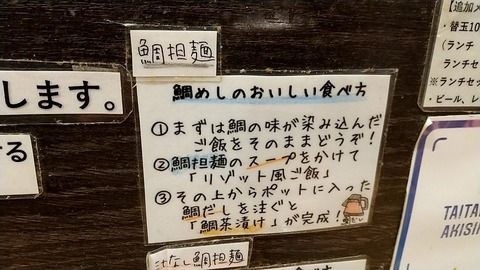 鯛担麺
鯛めしのおいしい食べ方
①まずは鯛の味が染み込んだ
ご飯をそのままどうぞ！
②鯛担麺のスープをかけて
「リゾット風ご飯」
③その上からポットに入った
鯛だしを注ぐと
「鯛茶漬け」が完成！
鯛だし
汁なし鯛担麺
します。
する
【追加メ
・替玉10
（ランチ
ランチセ
※ランチセッ
・ビール、レ
TAITA
AKISI